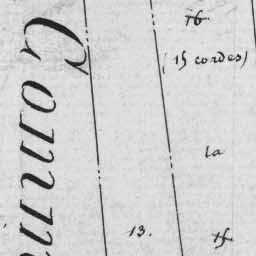 16
(15 cordes)
la
13.
15